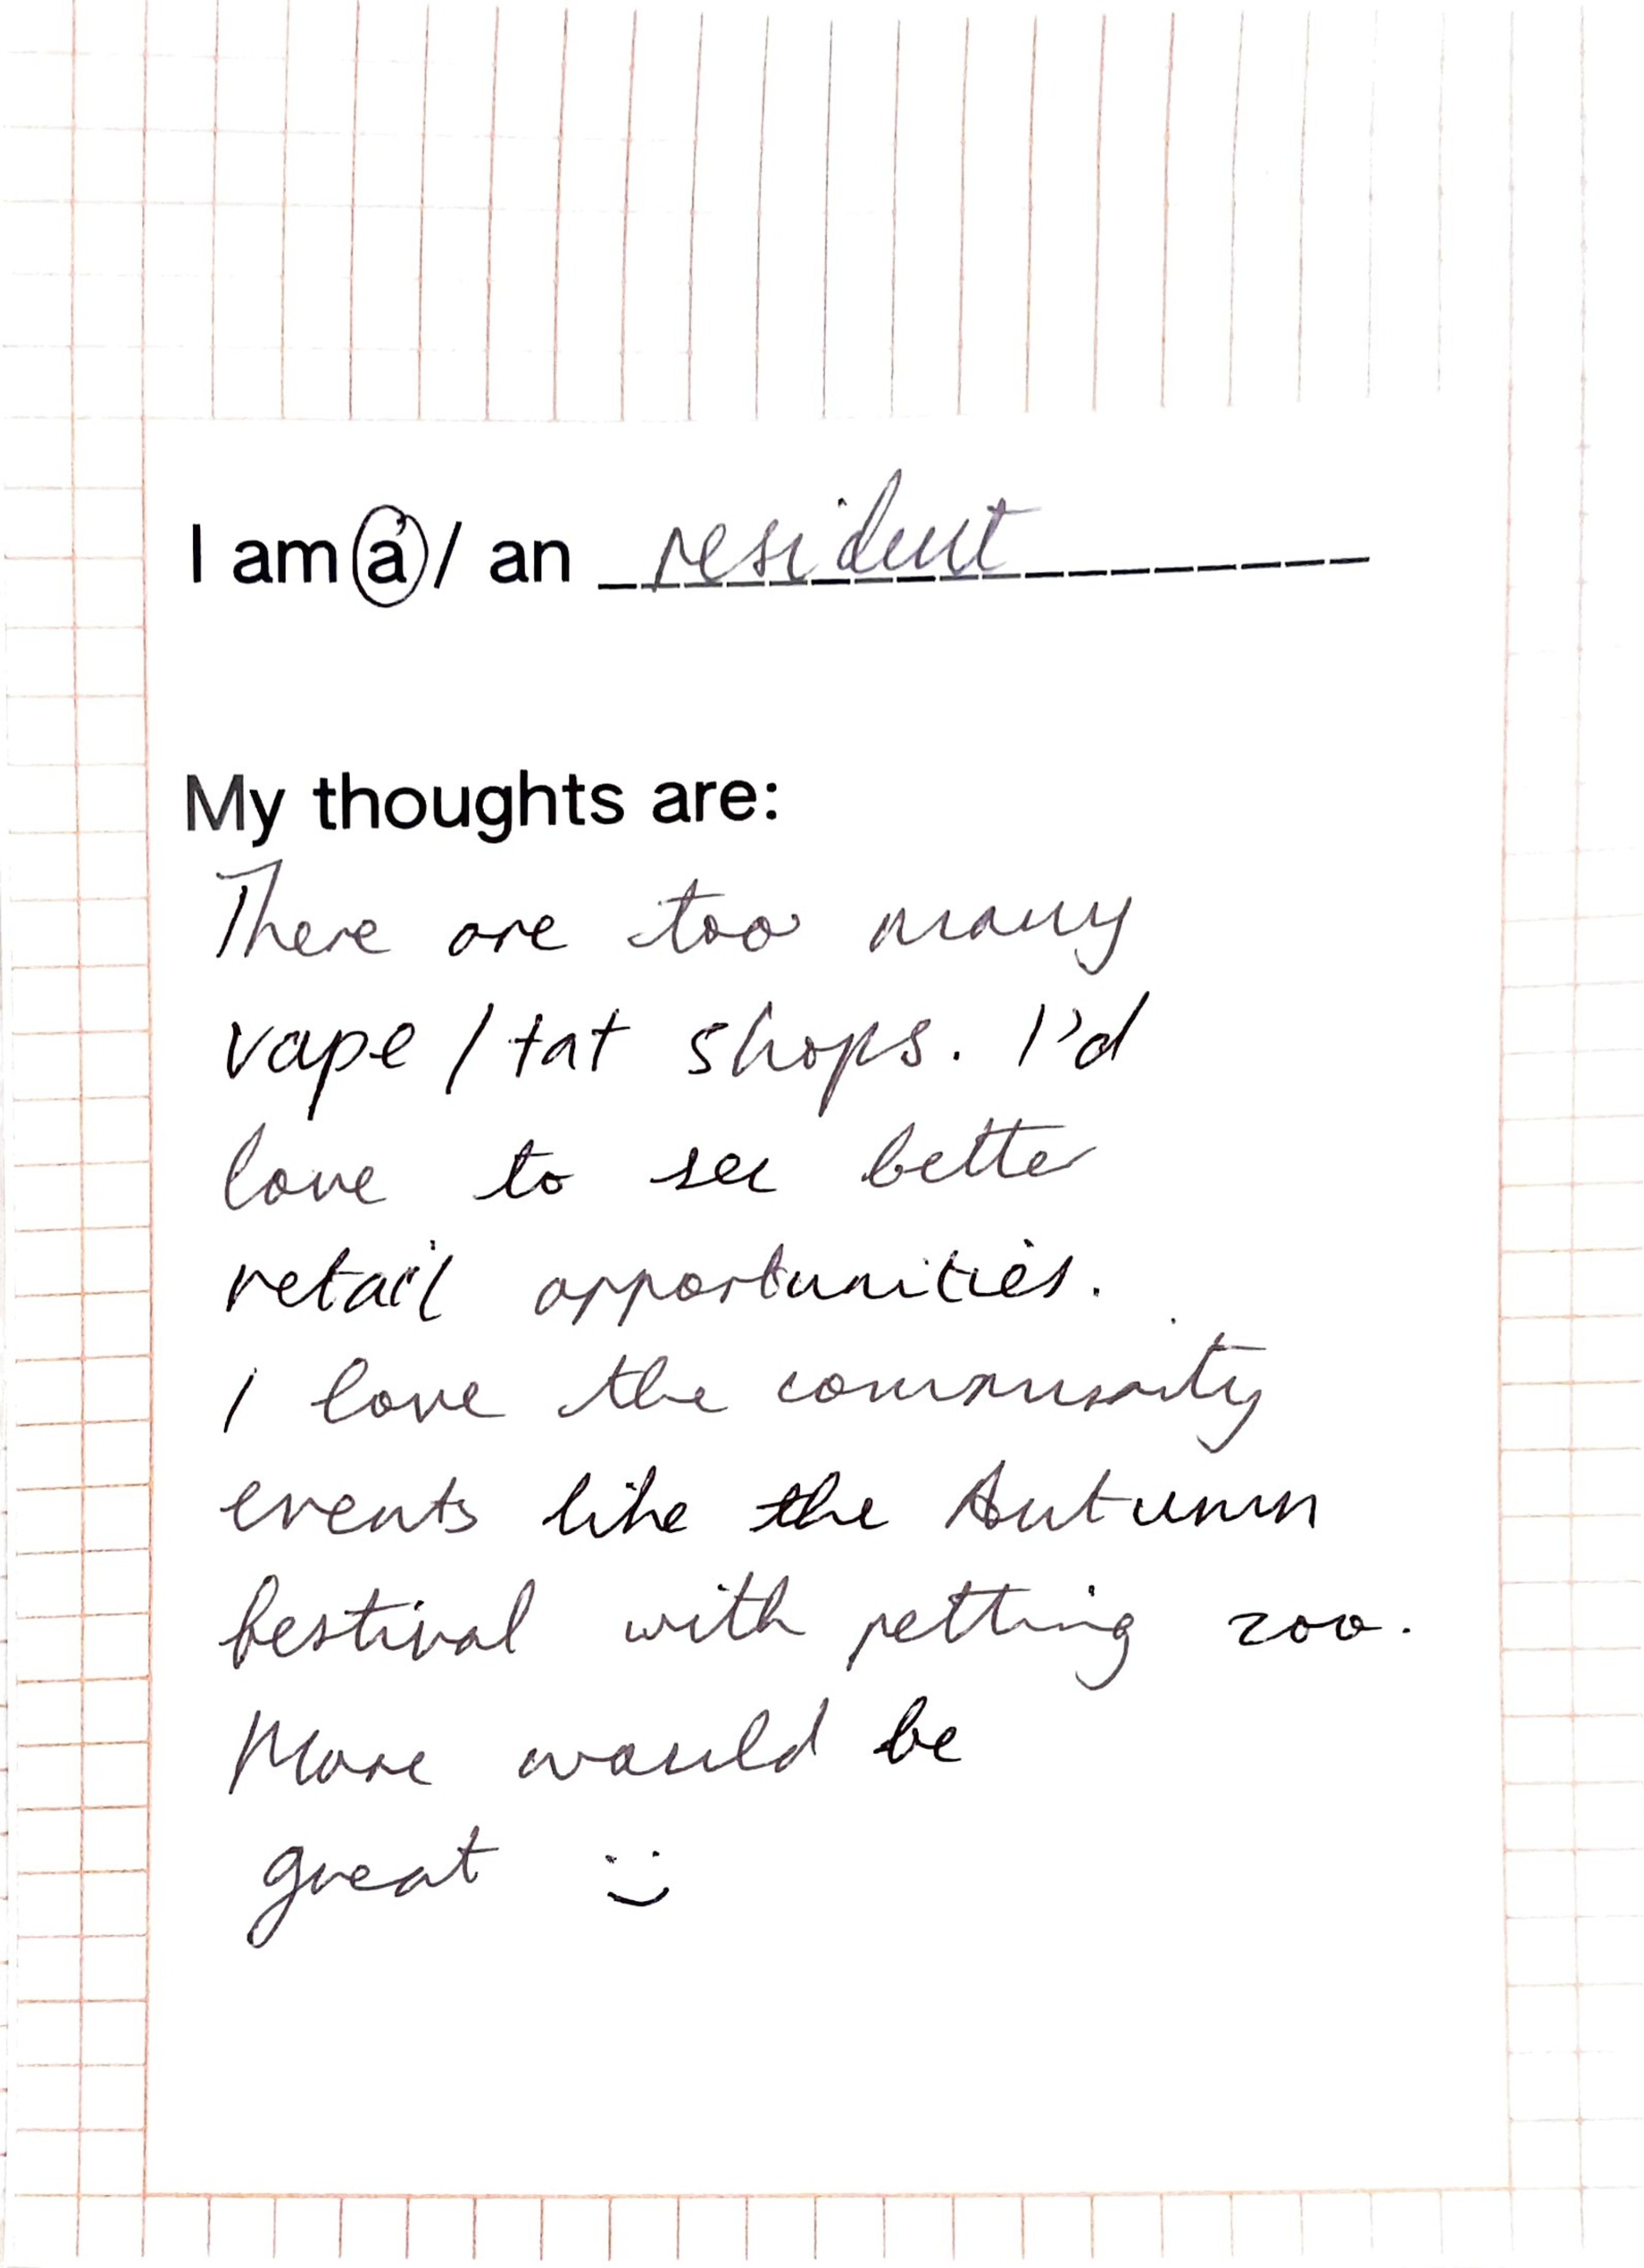 I am a / an resident
My thoughts are:
There are too many
vape / tat shops. I'd
love to see better
retail opportunities.
I love the community
events like the Autumn
festival with petting zoo.
More would be
great :)